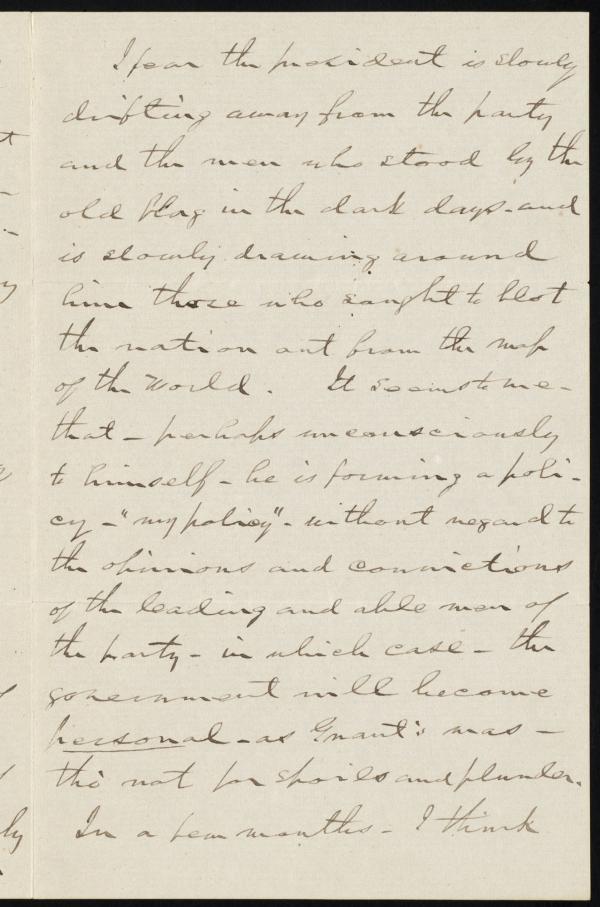 I fear the president is slowly
drifting away from the party
and the men who stood by the
old flag in the dark days - and
is slowly drawing around
him those who sought to blot
the nation out from the map
of the World. It seems to me -
that - perhaps unconsciously
to himself - he is forming a poli-
cy - "my policy" - without regard to
the opinions and convictions
of the leading and able men of
the party - in which case - the
government will become
personal - as Grant's was -
tho' not for spoils and plunder.
In a few months - I think